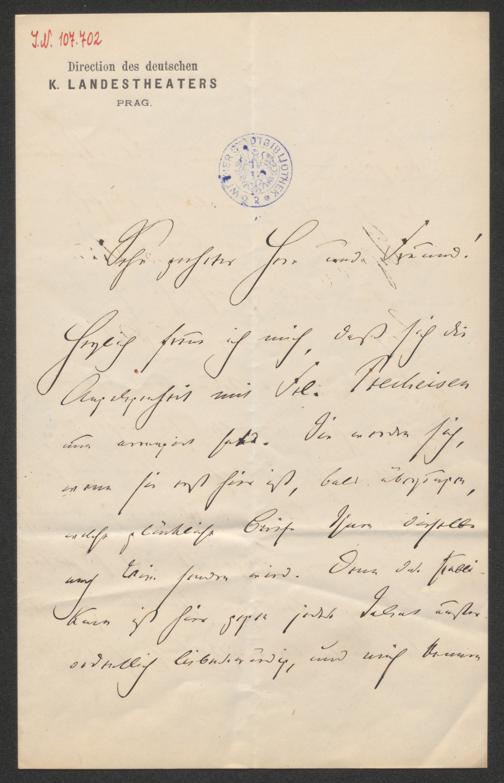 J.N. 107.702
Direction des deutschen
K. LANDESTHEATERS
PRAG.
Sehr geehrter Herr und Freund!
Herzlich freue ich mich, daß sich die
Angelegenheit mit Frl. Precheisen
nun arrangirt hat. Sie werden sich,
wenn sie erst hier ist, bald überzeugen,
welch glückliche Briefe Ihnen dieselbe
nach Wien senden wird. Denn das Publi-
kum ist hier gegen jedes Talent außer-
ordentlich liebenswürdig, und mich kennen